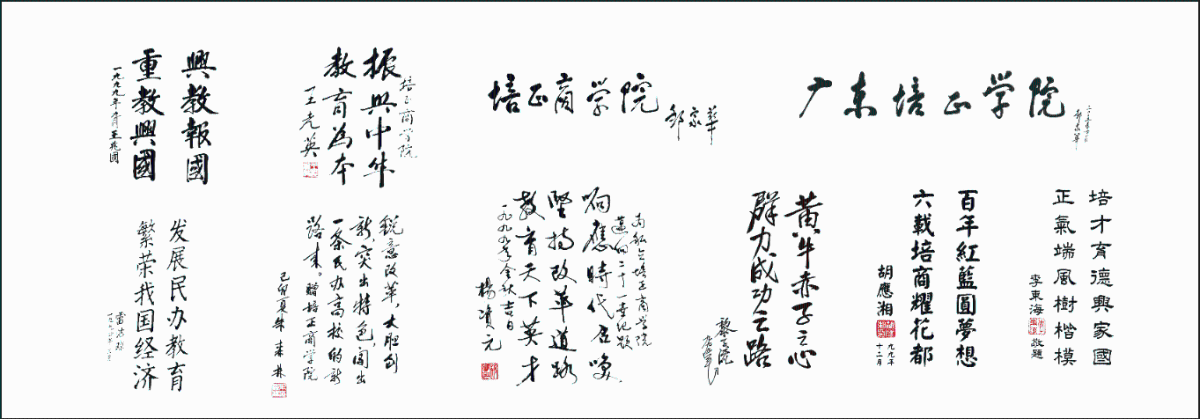 興教報國
重教興國
王兆國
培正商学院
振興中华
教育為本
王光英
培正商学院
邹家华
广东培正学院
发展民办教育
繁荣我国经济
雷洁琼
锐意改革，大胆创
新，突出特色，闯出
一条民办高校的新
路来。赠培正商学院
己卯夏 朱森林
响應時代召唤
堅持改革道路
教育天下英才
一九九九年金秋吉日
杨资元
黄牛赤子之心
群力成功之路
黎子流
百年紅藍圓夢想
六載培商耀花都
胡應湘
一九九九年
十二月
培才育德興家國
正氣端風樹楷模
李東海
敬題